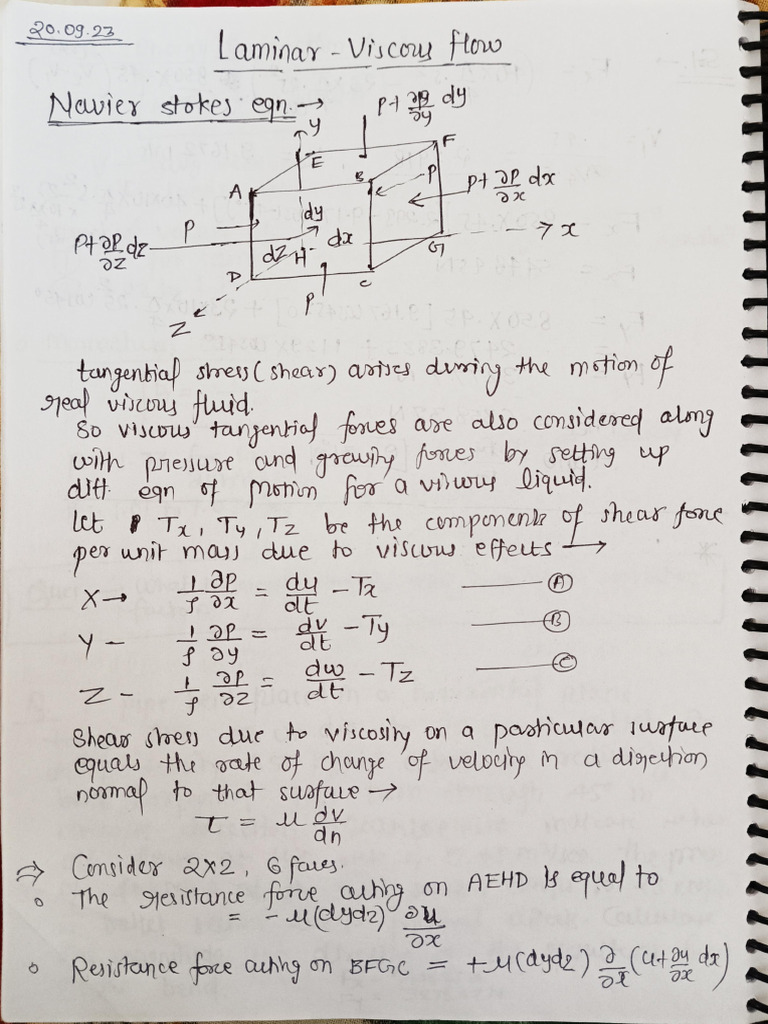 20.09.23
Laminar - Viscous flow
Navier stokes eqn. →
P+ ∂p/∂y dy
y
E
F
A
B
P
P+ ∂P/∂x dx
P
dy
P+ ∂P/∂z dz
dz
H
dx
G
→ x
D
C
P
Z
tangential stress (shear) arises during the motion of
real viscous fluid.
So viscous tangential forces are also considered along
with pressure and gravity forces by setting up
diff. eqn of motion for a viscous liquid.
let Tx, Ty, Tz be the components of shear force
per unit mass due to viscous effects →
X→ 1/ρ ∂P/∂x = du/dt - Tx —— (A)
Y - 1/ρ ∂P/∂y = dv/dt - Ty —— (B)
Z - 1/ρ ∂P/∂z = dw/dt - Tz —— (C)
Shear stress due to viscosity on a particular surface
equals the rate of change of velocity in a direction
normal to that surface →
τ = μ dv/dn
⇒ Consider 2x2, 6 faces.
◦ The resistance force acting on AEHD is equal to
= - μ(dydz) ∂u/∂x
◦ Resistance force acting on BFGC = +μ(dydz) ∂/∂x (u+ ∂u/∂x dx)